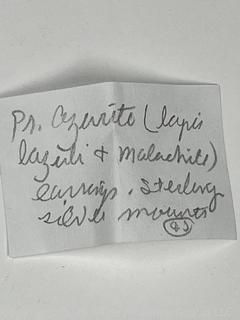 Pr. Azurite (lapis
lazuli & Malachite)
earrings. Sterling
silver mounts